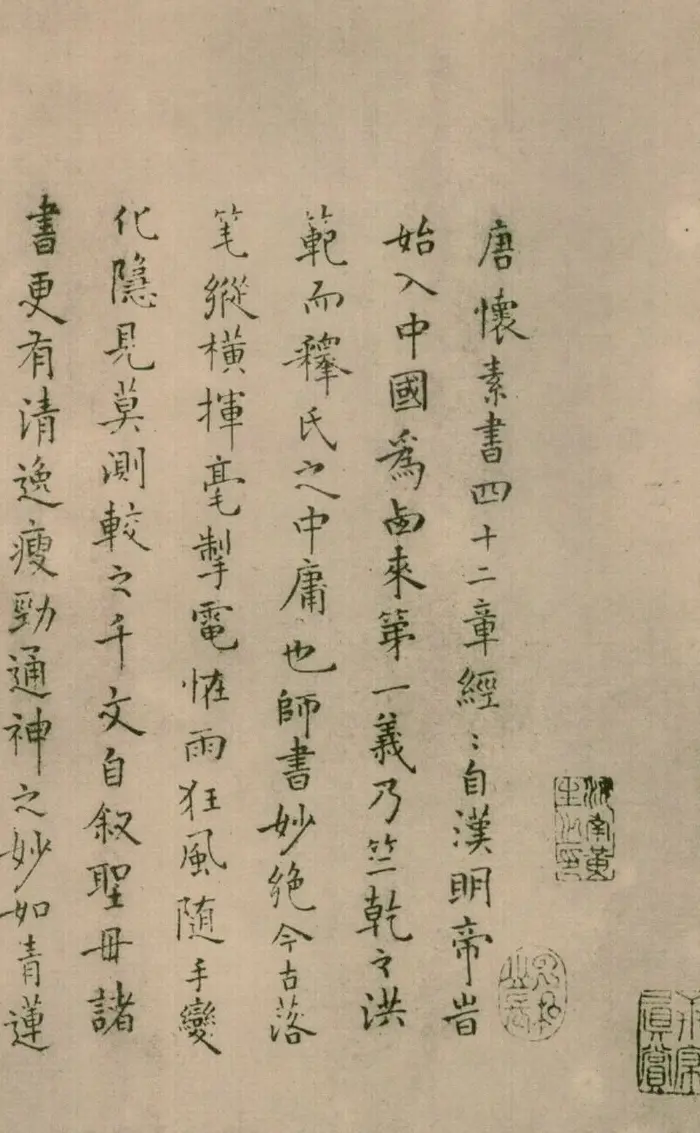 唐懷素書四十二章經〻自漢明帝旹
始入中國為卥來第一義乃竺乾之洪
範而釋氏之中庸也師書妙絶今古落
笔縱橫揮毫掣電恠雨狂風隨手變
化隱見莫測較之千文自叙聖母諸
書更有清逸瘦勁通神之妙如青蓮
真賞